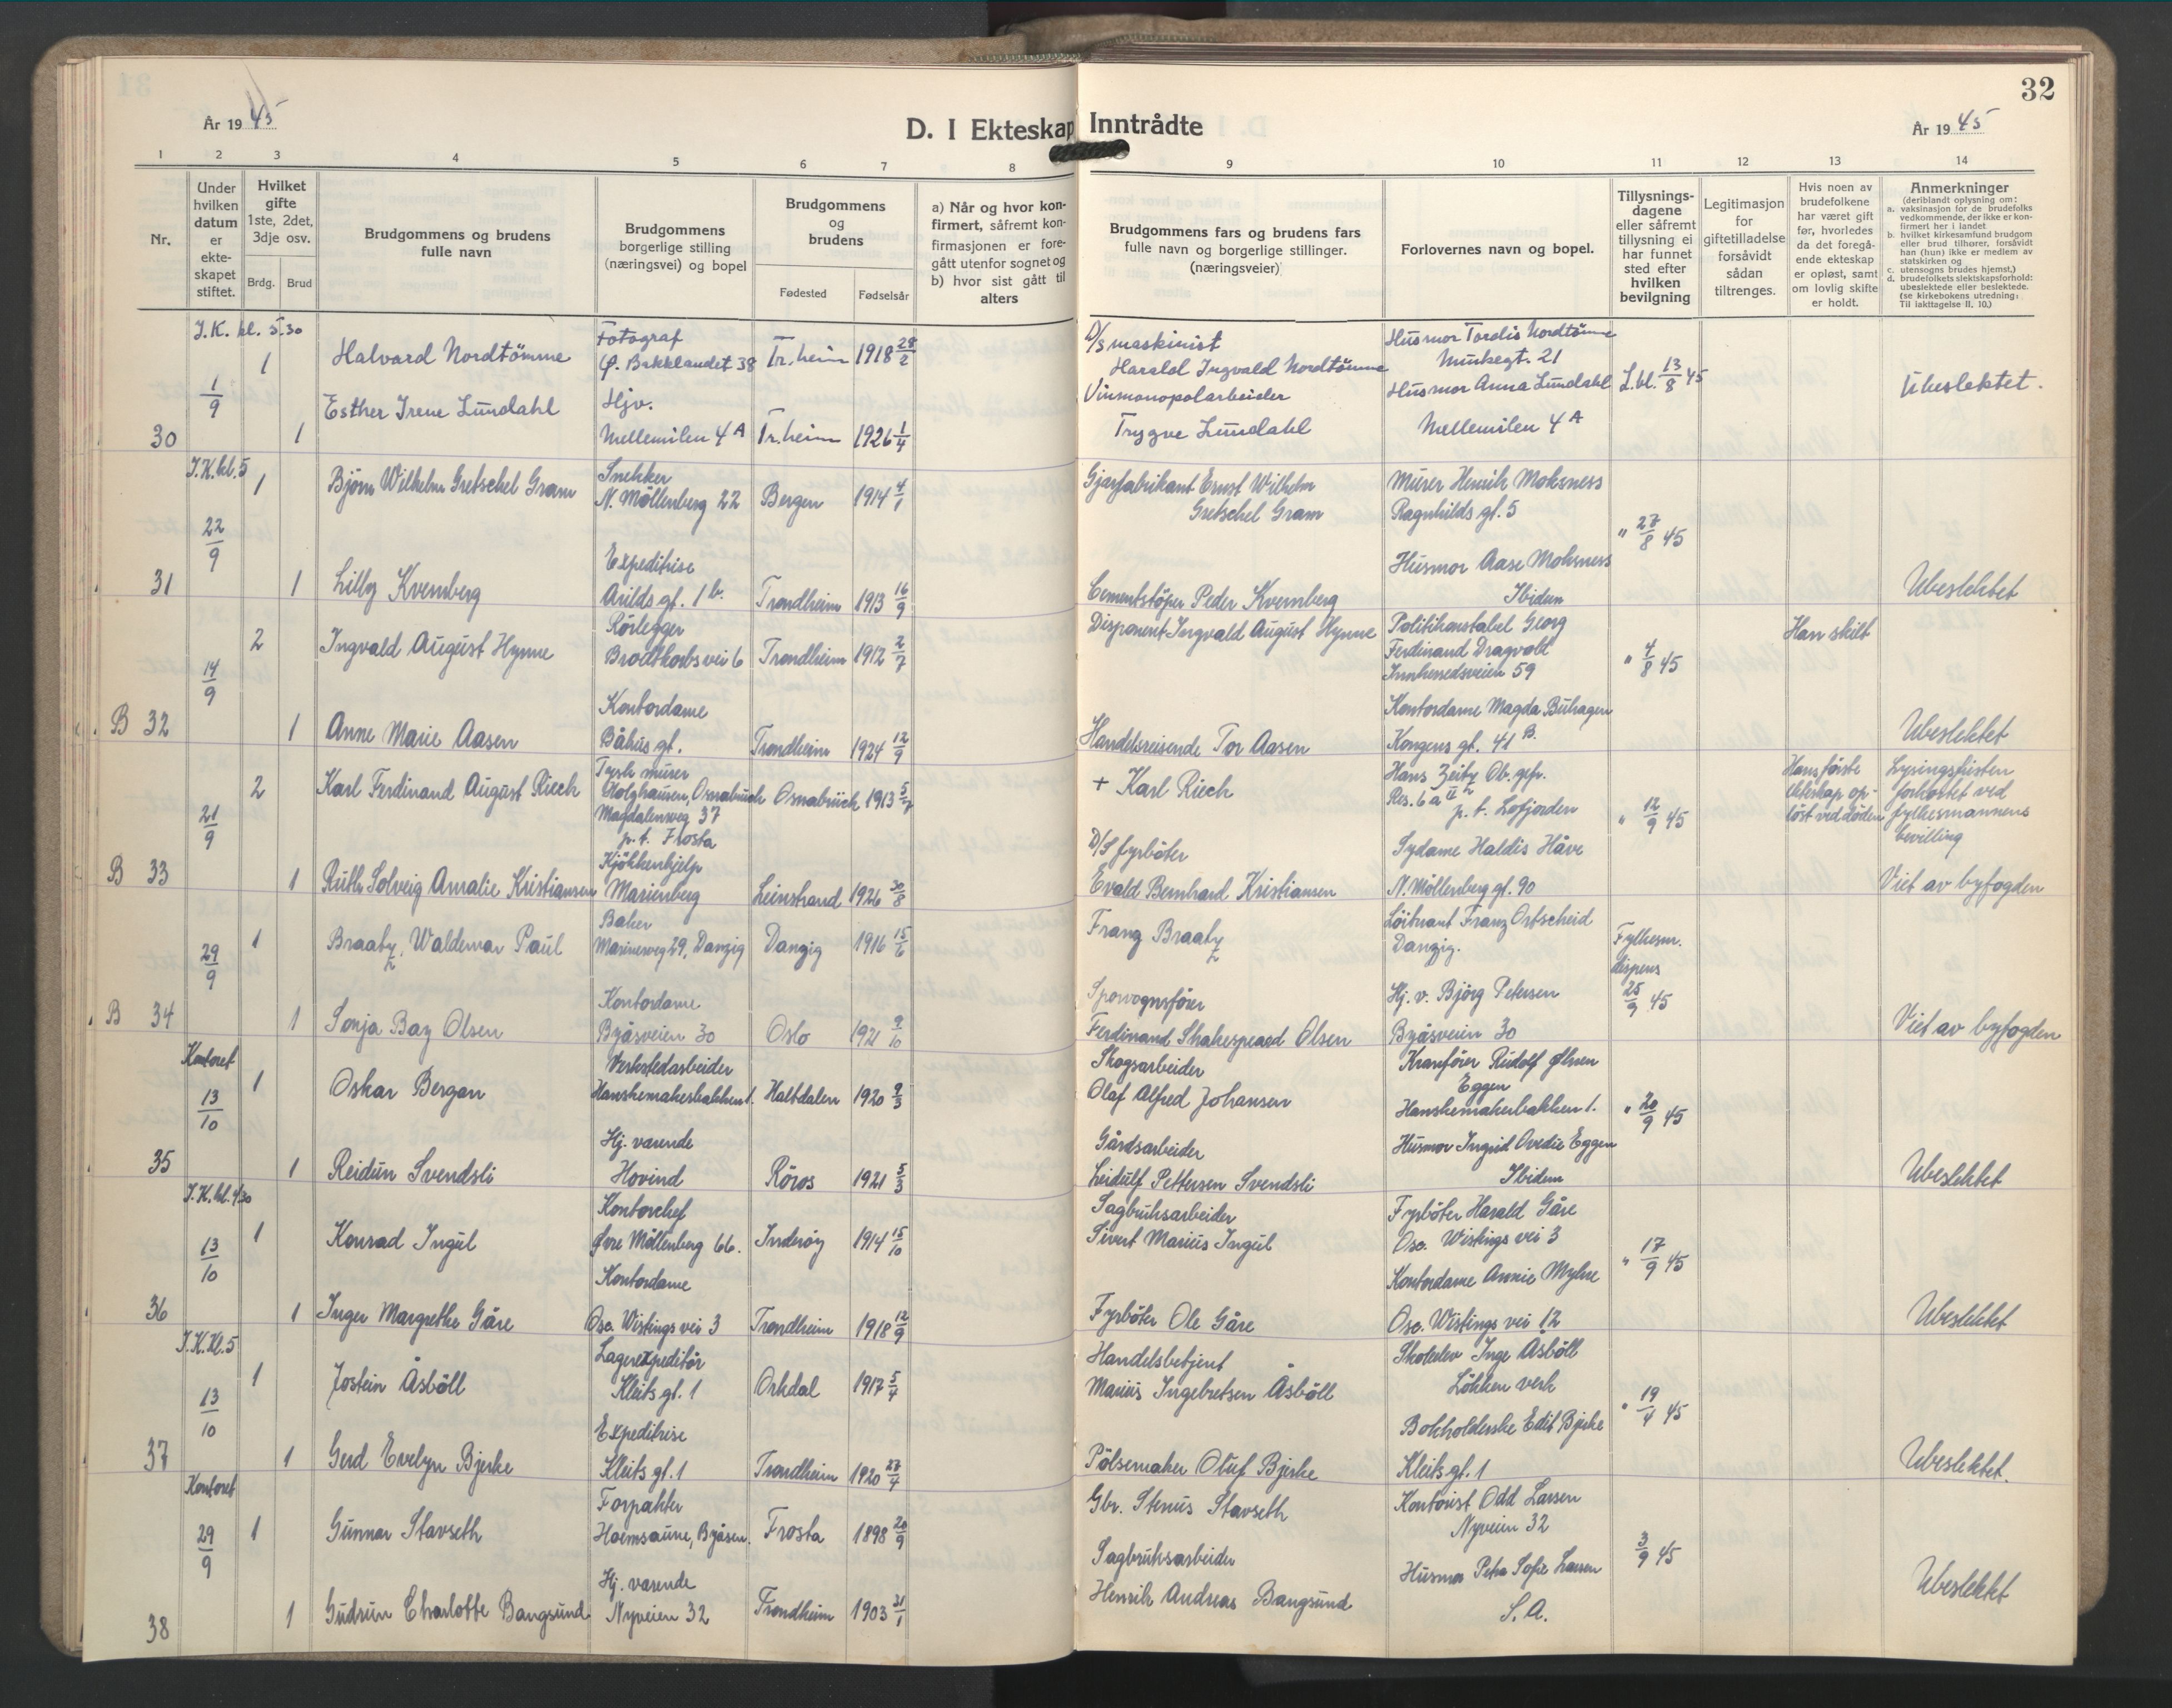 32
År 1945
D. I Ekteskap Inntrådte
År 1945
1 2 3 4 5 6 7 8 9 10 11 12 13 14
Nr.
Under hvilken datum er ekteskapet stiftet.
Hvilket gifte 1ste, 2det, 3dje osv.
Brdg. Brud
Brudgommens og brudens fulle navn
Brudgommens borgerlige stilling (næringsvei) og bopel
Brudgommens og brudens
Fødested Fødselsår
a) Når og hvor konfirmert, såfremt konfirmasjonen er foregått utenfor sognet og
b) hvor sist gått til alters
Brudgommens fars og brudens fars fulle navn og borgerlige stillinger. (næringsveier)
Forlovernes navn og bopel.
Tillysningsdagene eller såfremt tillysning ei har funnet sted efter hvilken bevilgning
Legitimasjon for giftetilladelse forsåvidt sådan tiltrenges.
Hvis noen av brudefolkene har været gift før, hvorledes da det foregående ekteskap er opløst, samt om lovlig skifte er holdt.
Anmerkninger
(deriblandt oplysning om:
a. vaksinasjon for de brudefolks vedkommende, der ikke er konfirmert her i landet
b. hvilket kirkesamfund brudgom eller brud tilhører, forsåvidt han (hun) ikke er medlem av statskirken og
c. utensogns brudes hjemst.)
d. brudefolkets slektskapsforhold: ubeslektede eller beslektede.
(se kirkebokens utredning: Til Iakttagelse II. 10.)
I.K. kl. 5.30
1/9
30
1 Halvard Nordtömme
Fotograf
Ø. Bakklandet 38 Tr.heim 1918 28/2
D/S maskinist
Harald Ingvald Nordtömme
Husmor Tordis Nordtömme
Munkegt. 21
L.bl. 13/8 45
1 Esther Irene Lundahl
Hjv.
Mellemilen 4 A Tr.heim 1926 1/4
Vinmonopolarbeider
Trygve Lundahl
Husmor Anna Lundahl
Mellemilen 4 A
Ubeslektet.
I.K. kl. 5
22/9
31
1 Björn Wilhelm Gretschel Gram
Snekker
N. Möllenberg 22 Bergen 1914 4/1
Gjærfabrikant Ernst Wilhelm
Gretschel Gram
Murer Henrik Moksness
Ragnhilds gt. 5
" 27/8 45
1 Lilly Kvernberg
Expeditrise
Arilds gt. 1 b. Trondheim 1913 16/9
Cementstöper Peder Kvernberg
Husmor Aase Moksness
Ibidem
Ubeslektet
14/9
B 32
2 Ingvald August Hynne
Rörlegger
Brodtkorbs vei 6 Trondheim 1912 2/7
Disponent Ingvald August Hynne
Politikonstabel Georg
Ferdinand Dragvold
Innherredsveien 59
" 4/8 45
Han skilt
1 Anne Marie Aasen
Kontordame
Båhus gt. Trondheim 1924 12/9
Handelsreisende Tor Aasen
Kontordame Magda Buhagen
Kongens gt. 41 B.
Ubeslektet
21/9
B 33
2 Karl Ferdinand August Riech
Tysk murer
Holzhausen, Osnabrück
Magdalenweg 37
p.t. Frosta
Osnabrück 1913 5/7
+ Karl Riech
Hans Zeitz Ob. gefr.
Res. 6 a II
p.t. Lofjorden
" 12/9 45
Hans förste ekteskap oplöst ved döden
Lysingsfristen forkortet ved fylkesmannens bevilling
1 Ruth Solveig Amalie Kristiansen
Kjökkenhjelp
Marienberg Leinstrand 1926 30/8
D/S fyrböter
Evald Bernhard Kristiansen
Sydame Haldis Håve
N. Möllenberg gt. 90
Viet av byfogden
29/9
B 34
1 Braatz, Waldemar Paul
Baker
Marineweg 29, Danzig Danzig 1916 15/6
Franz Braatz
Löitnant Franz Ortscheid
Danzig.
Fylkesm.
dispens
25/9 45
1 Sonja Bay Olsen
Kontordame
Byåsveien 30 Oslo 1921 9/10
Sporvognsförer
Ferdinand Shakespeard Olsen
Hj. v. Björg Petersen
Byåsveien 30
Viet av byfogden
Kontoret
13/10
35
1 Oskar Bergan
Verkstedarbeider
Hanskemakerbakken 1. Haltdalen 1920 9/3
Skogsarbeider
Olaf Alfred Johansen
Kranförer Rudolf
Eggen
Hanskemakerbakken 1.
" 20/9 45
1 Reidun Svendsli
Hj. værende
Hovind Röros 1921 5/3
Gårdsarbeider
Leidulf Pettersen Svendsli
Husmor Ingrid Ovedie Eggen
Ibidem
Ubeslektet
I.K. kl. 4.30
13/10
36
1 Konrad Ingul
Kontorchef
Øvre Möllenberg 66. Inderöy 1914 15/10
Sagbruksarbeider
Sivert Marius Ingul
Fyrböter Harald Gåre
Osc. Wistings vei 3
" 17/9 45
1 Inger Margrethe Gåre
Kontordame
Osc. Wistings vei 3 Trondheim 1918 12/9
Fyrböter Ole Gåre
Kontordame Annie Myhre
Osc. Wistings vei 12
Ubeslektet
I.K. kl. 5
13/10
37
1 Jostein Åsböll
Lagerexpeditör
Kleits gt. 1 Orkdal 1917 5/4
Handelsbetjent
Marius Ingebretsen Åsböll
Skoleelev Inge Åsböll
Lökken verk
" 19/4 45
1 Gerd Evelyn Bjerke
Expeditrise
Kleits gt. 1 Trondheim 1920 27/4
Pölsemaker Oluf Bjerke
Bokholderske Edit Bjerke
Kleits gt. 1
Ubeslektet.
Kontoret
29/9
38
1 Gunnar Stavseth
Forpakter
Havmsaune, Byåsen. Frosta 1898 20/9
Gbr. Stenus Stavseth
Kontorist Odd Larsen
Nyveien 32
3/9 45
1 Gudrun Charlotte Bangsund
Hj. værende
Nyveien 32 Trondheim 1903 21/1
Sagbruksarbeider
Henrik Andreas Bangsund
Husmor Petra Sofie Larsen
S. A.
Ubeslektet